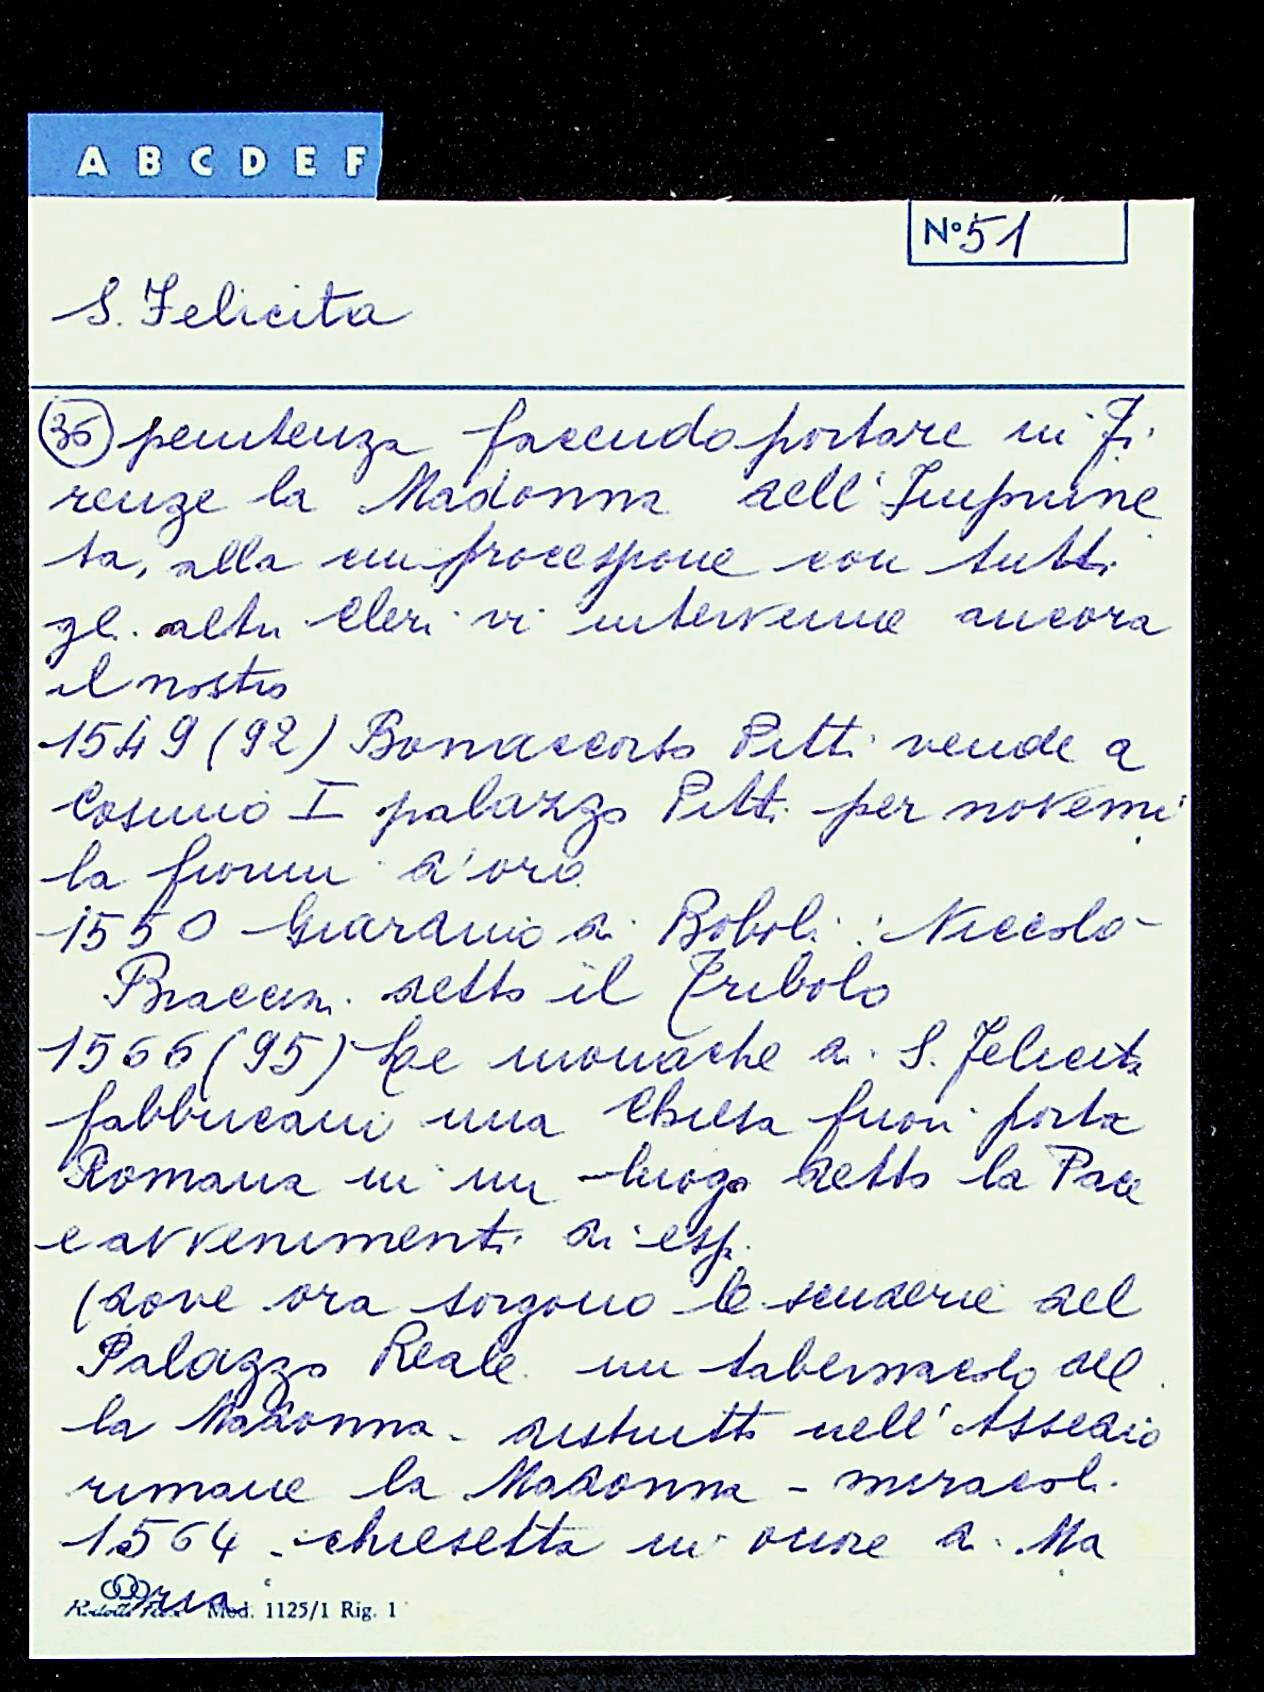 A B C D E F
N° 51
S. Felicita
36 penitenza facendo portare in Fi
renze la Madonna dell'Imprune
ta, alla cui processione con tutti
gli altri Cleri vi intervenne ancora
il nostro
1549 (92) Bonaccorso Pitti vende a
Cosimo I palazzo Pitti per novemi
la fiorini d'oro
1550 Giardino di Boboli: Niccolò
Braccini detto il Tribolo
1566 (95) Le monache di S. Felicita
fabbricani una Chiesa fuori porta
Romana in un luogo detto la Pace
e avvenimenti di esp.
(dove ora sorgono le scuderie del
Palazzo Reale un tabernacolo del
la Madonna - distrutto nell'Assedio
rimane la Madonna - miracoli
1564 - chiesetta in onore di Ma
ria
Mod. 1125/1 Rig. 1